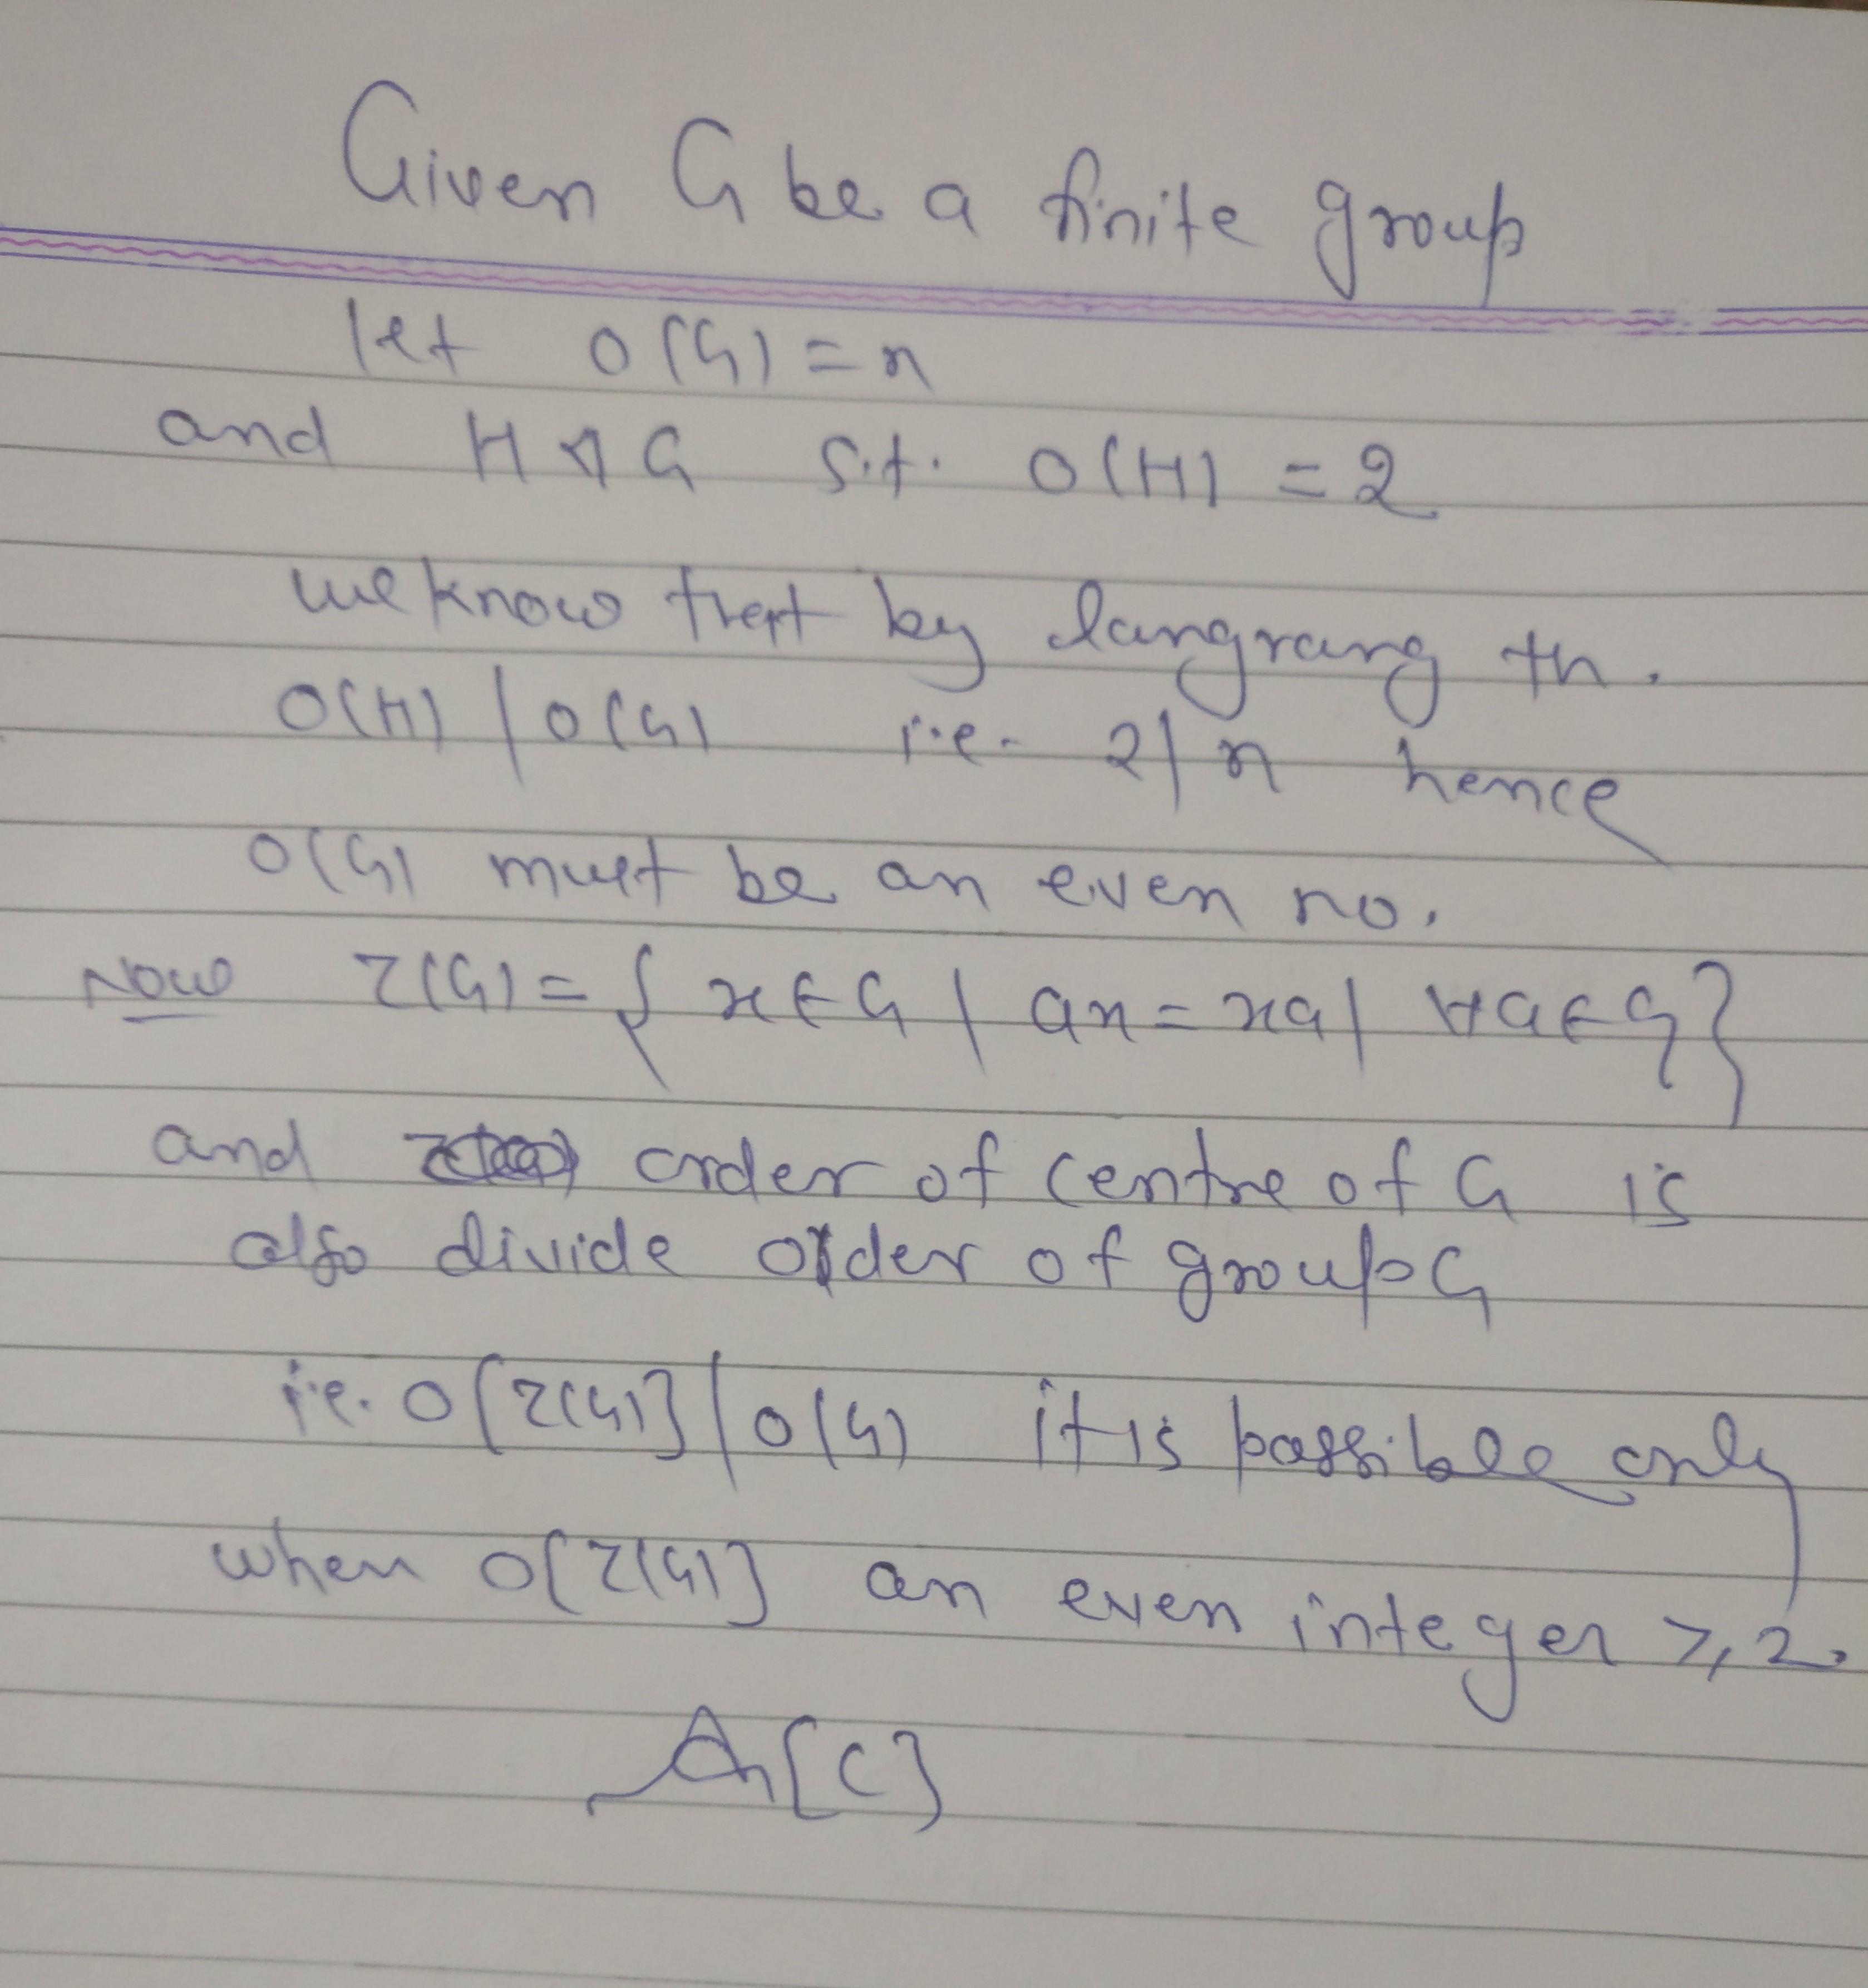 Given G be a finite group
let O(G) = n
and H ⊲ G s.t. O(H) = 2
we know that by langrang th.
O(H) / O(G) i.e. 2/n hence
O(G) must be an even no.
Now Z(G) = { x ∈ G / ax = xa / ∀ a ∈ G }
and order of centre of G is
also divide order of group G
i.e. O[Z(G)] / O(G) it is possible only
when O[Z(G)] an even integer ≥ 2.
A[C]